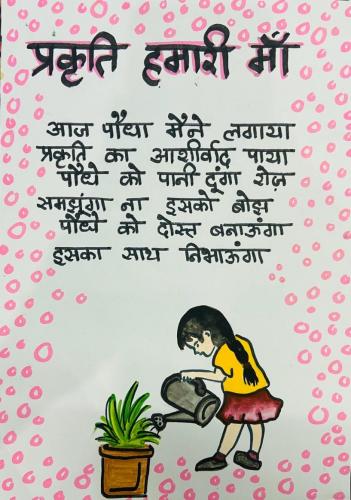 प्रकृति हमारी माँ
आज पौधा मैंने लगाया
प्रकृति का आशीर्वाद पाया
पौधे को पानी दूंगा रोज़
समझूंगा ना इसको बोझ
पौधे को दोस्त बनाऊंगा
इसका साथ निभाऊंगा